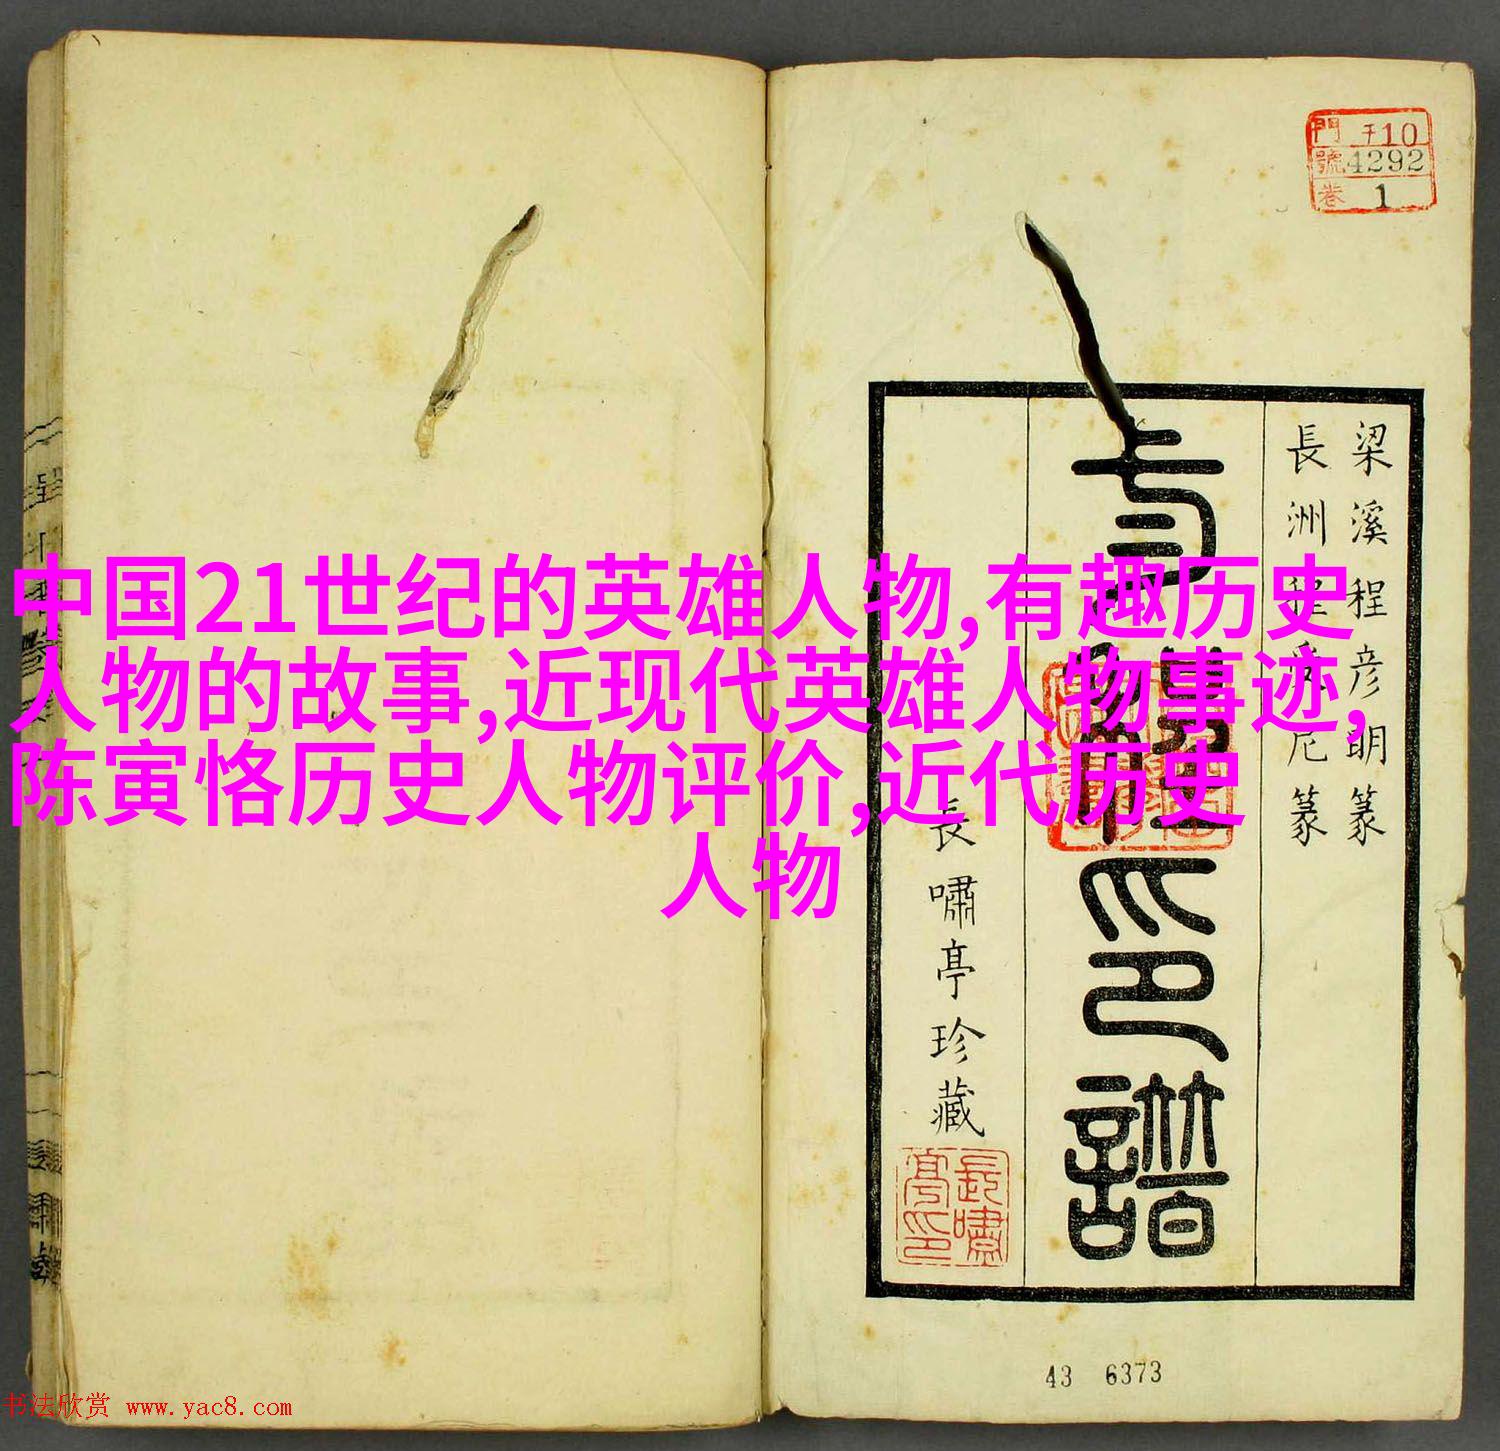 門 于10
號 4292
卷 1
梁溪程彦明篆
長洲程 尼篆
印譜
長嘯亭珍藏
長嘯亭印
中国21世纪的英雄人物,有趣历史
人物的故事,近现代英雄人物事迹,
陈寅恪历史人物评价,近代历史
人物
43 6373
书法欣赏 www.yac8.com